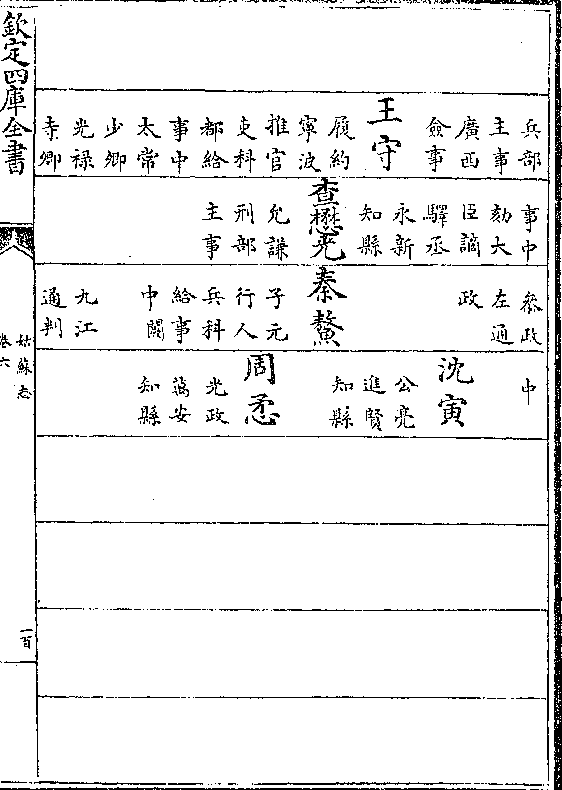 兵部
主事
廣西
僉事
王守
履約
寧波
推官
吏科
都給
事中
太常
少卿
光禄
寺卿
事中
劾大
臣謫
驛丞
永新
知縣
查懋光
允謙
刑部
主事
叅政
左通
政
秦鰲
子元
行人
兵科
給事
中闕
九江
通判
中
沈寅
公亮
進賢
知縣
周
光政
萬安
知縣
欽定四庫全書
姑蘇志
卷六
一百